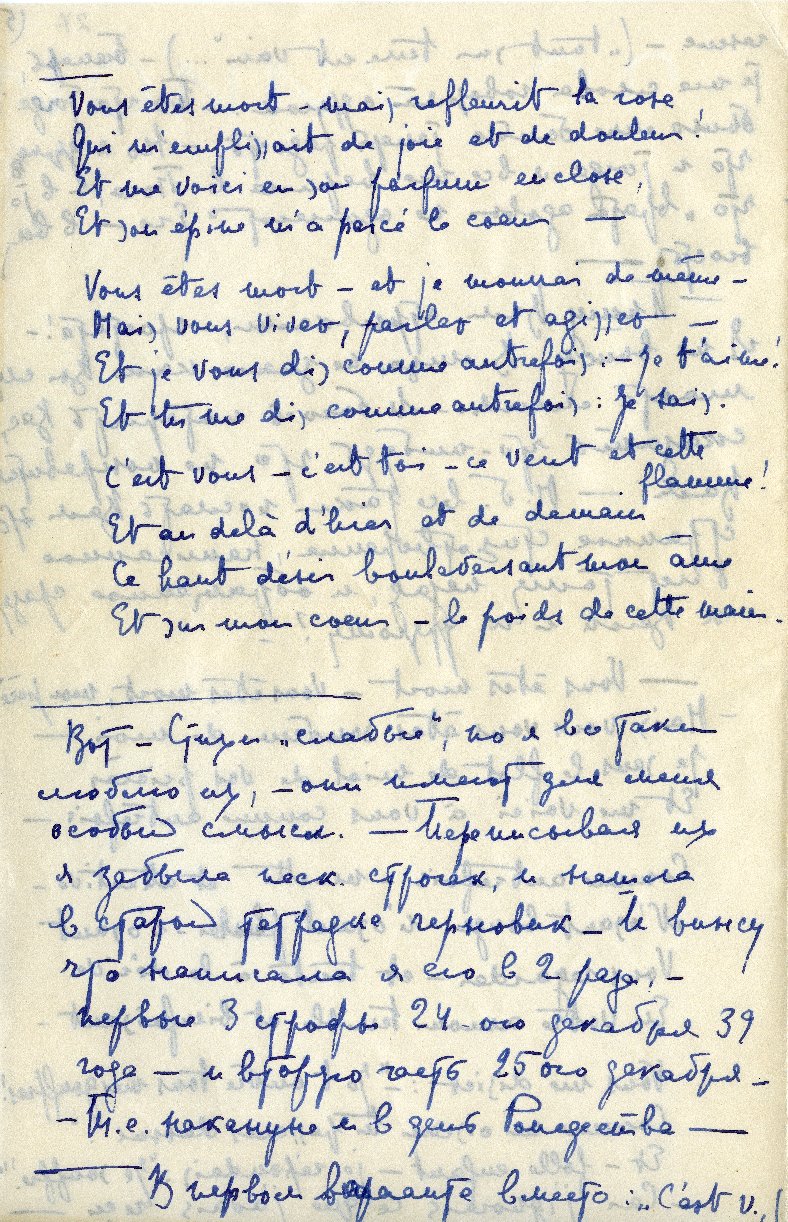 Vous êtes mort – mais refleurit la rose
Qui m'emplissait de joie et de douleur!
Et me voici en son parfum enclose,
Et son épine m'a percé le coeur —
Vous êtes mort – et je mourrai de même –
Mais vous vivez, parlez et agissez —
Et je vous dis comme autrefois: – Je t'aime!
Et tu me dis comme autrefois: Je sais.
C'est vous – c'est toi – ce vent et cette
flamme!
Et au delà d'hier et de demain
Ce haut désir bouleversant mon âme
Et sur mon coeur – le poids de cette main.
Вот – Стихи „слабые", но я все таки
люблю их, – они имеют для меня
особый смысл. – Переписывая их
я забыла неск. строчек, и нашла
в старой тетрадке черновик – И вижу
что написала я его в 2 раза, –
первые 3 строфы 24 ого декабря 39
года – и вторую часть 25 ого декабря –
– Т.е. накануне и в день Рождества —
В первом варианте вместо: „C'est v.,